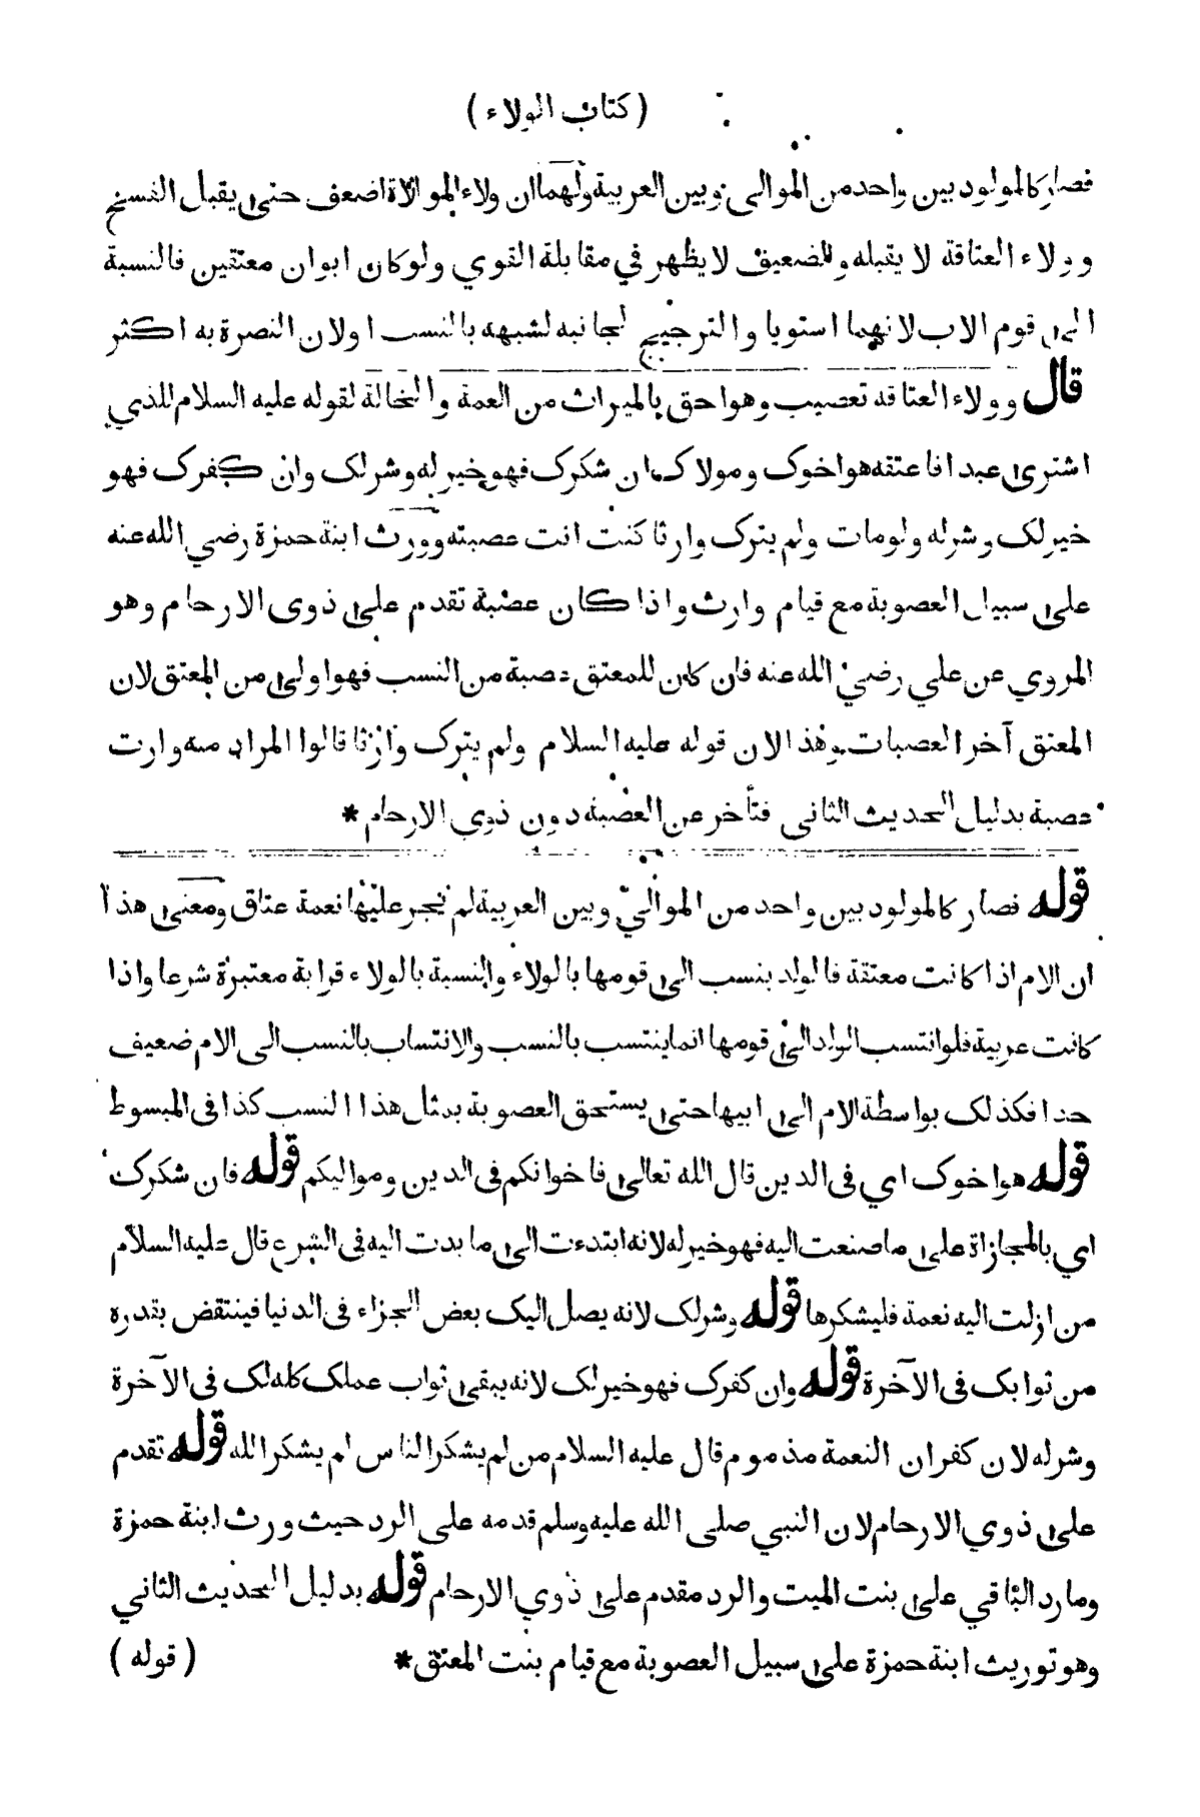 (كتاب الولاء)
فصار كالمولود بين واحد من الموالى وبين العربية ولهما ان ولاء الموالاة اضعف حتى يقبل الفسخ
وولاء العتاقة لا يقبله والضعيف لا يظهر في مقابلة القوي ولو كان ابوان معتقين فالنسبة
الى قوم الاب لانهما استويا والترجيح لجانبه لشبهه بالنسب اولان النصرة به اكثر
قال وولاء العتاقه تعصيب وهو احق بالميراث من العمة والخالة لقوله عليه السلام للذي
اشترى عبدا فاعتقه هو اخوك ومولاك فان شكرك فهو خير له وشر لك وان كفرك فهو
خير لك وشر له ولومات ولم يترك وارثا كنت انت عصبته وورث ابنة حمزة رضي الله عنه
على سبيل العصوبة مع قيام وارث واذا كان عصبة تقدم على ذوى الارحام وهو
المروي عن علي رضي الله عنه فان كان للمعتق عصبة من النسب فهو اولى من المعتق لان
المعتق آخر العصبات وهذا لان قوله عليه السلام ولم يترك وارثا قالوا المراد منه وارث
عصبة بدليل الحديث الثانى فتأخر عن العصبة دون ذوي الارحام *
قوله فصار كالمولود بين واحد من الموالي وبين العربية لم نجر عليها نعمة عتاق ومعنى هذا
ان الام اذا كانت معتقة فالولد ينسب الى قومها بالولاء والنسبة بالولاء قرابة معتبرة شرعا واذا
كانت عربية فلو انتسب الولد الى قومها انما ينتسب بالنسب والانتساب بالنسب الى الام ضعيف
جدا فكذلك بواسطة الام الى ابيها حتى يستحق العصوبة بمثل هذا النسب كذا فى المبسوط
قوله هو اخوك اي فى الدين قال الله تعالى فاخوانكم فى الدين ومواليكم قوله فان شكرك
اي بالمجازاة على ما صنعت اليه فهو خير له لانه ابتدءت الى ما بدت اليه فى الشرع قال عليه السلام
من ازلت اليه نعمة فليشكرها قوله وشر لك لانه يصل اليك بعض الجزاء فى الدنيا فينتقض بقدره
من ثوابك فى الآخرة قوله وان كفرك فهو خير لك لانه يبقى ثواب عملك كله لك فى الآخرة
وشر له لان كفران النعمة مذموم قال عليه السلام من لم يشكر الناس لم يشكر الله قوله تقدم
على ذوي الارحام لان النبي صلى الله عليه وسلم قدمه على الرد حيث ورث ابنة حمزة
وما رد الباقي على بنت الميت والرد مقدم على ذوي الارحام قوله بدليل الحديث الثاني
وهو توريث ابنة حمزة على سبيل العصوبة مع قيام بنت المعتق *
(قوله)